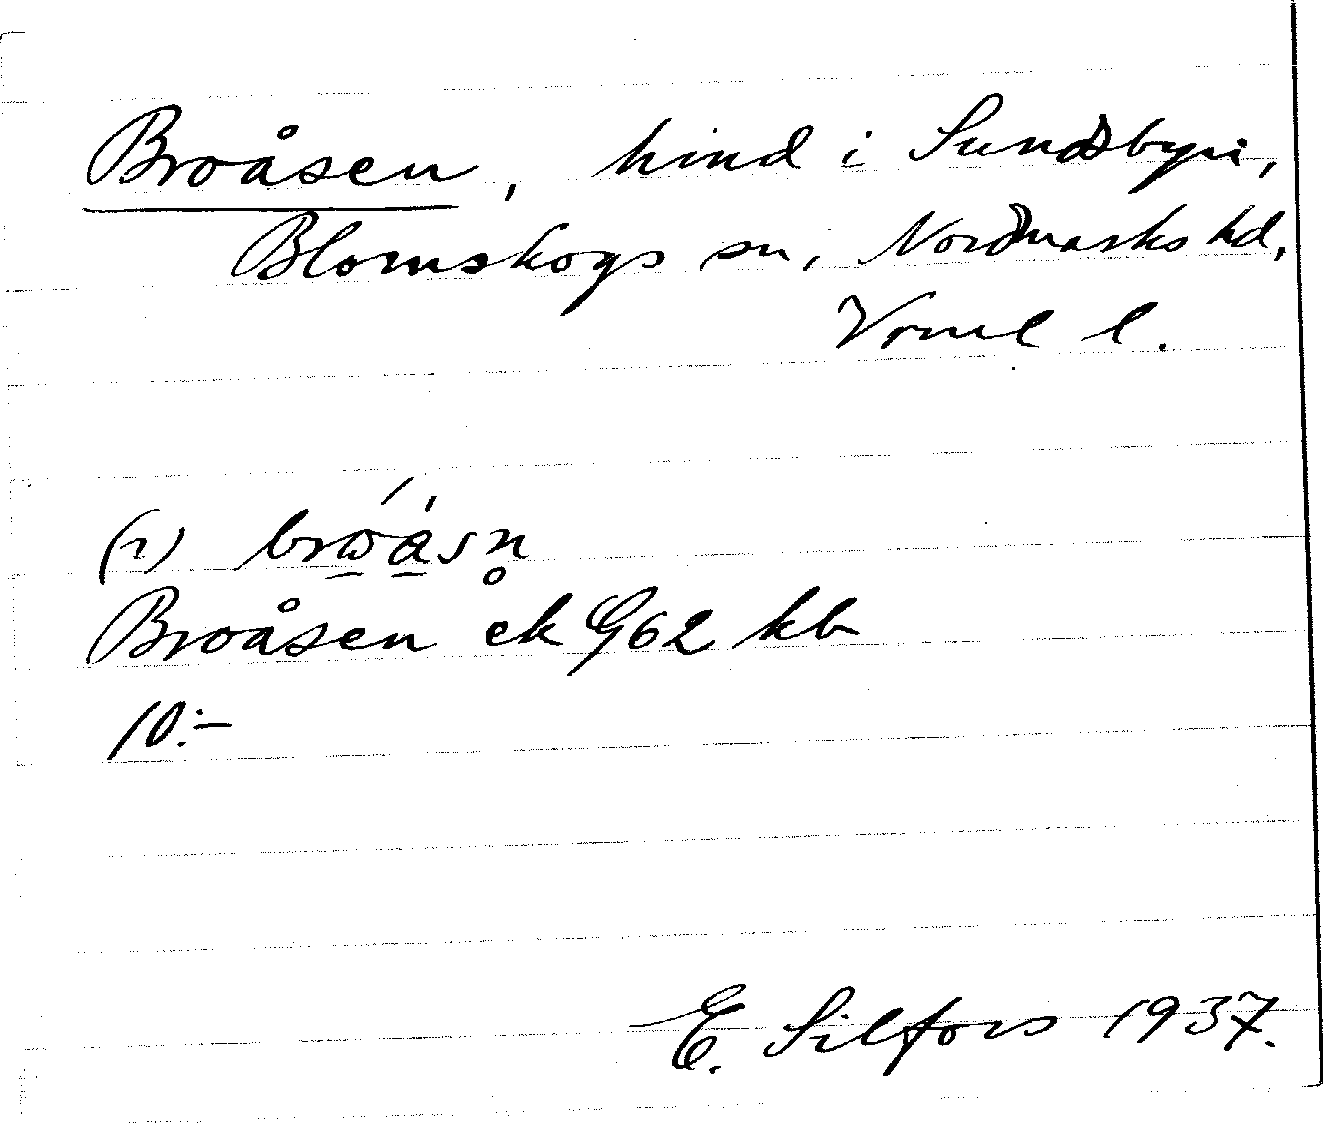 Broåsen, hmd i Sundsbyn,
Blomskogs sn, Nordmarks hd,
Vrml l.
(2)
Broåsen ek G62 kb
10:-
E. Silfors 1937.